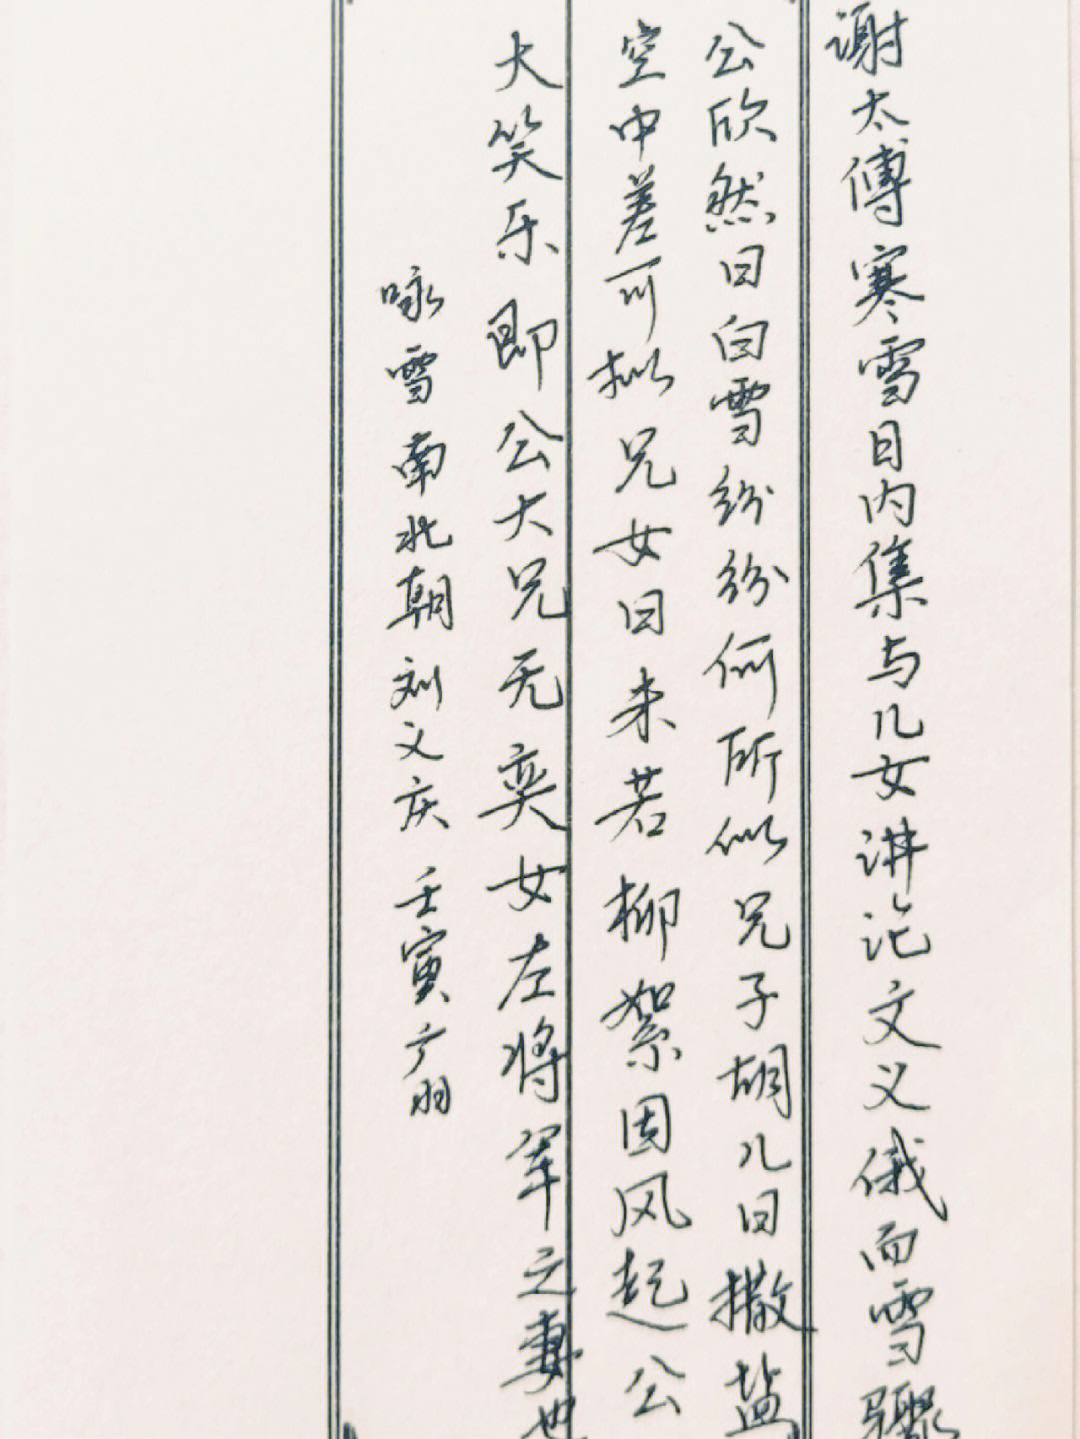 谢太傅寒雪日内集与儿女讲论文义俄而雪骤
公欣然曰白雪纷纷何所似兄子胡儿曰撒盐
空中差可拟兄女曰未若柳絮因风起公
大笑乐即公大兄无奕女左将军之妻也
咏雪南北朝刘义庆壬寅广羽